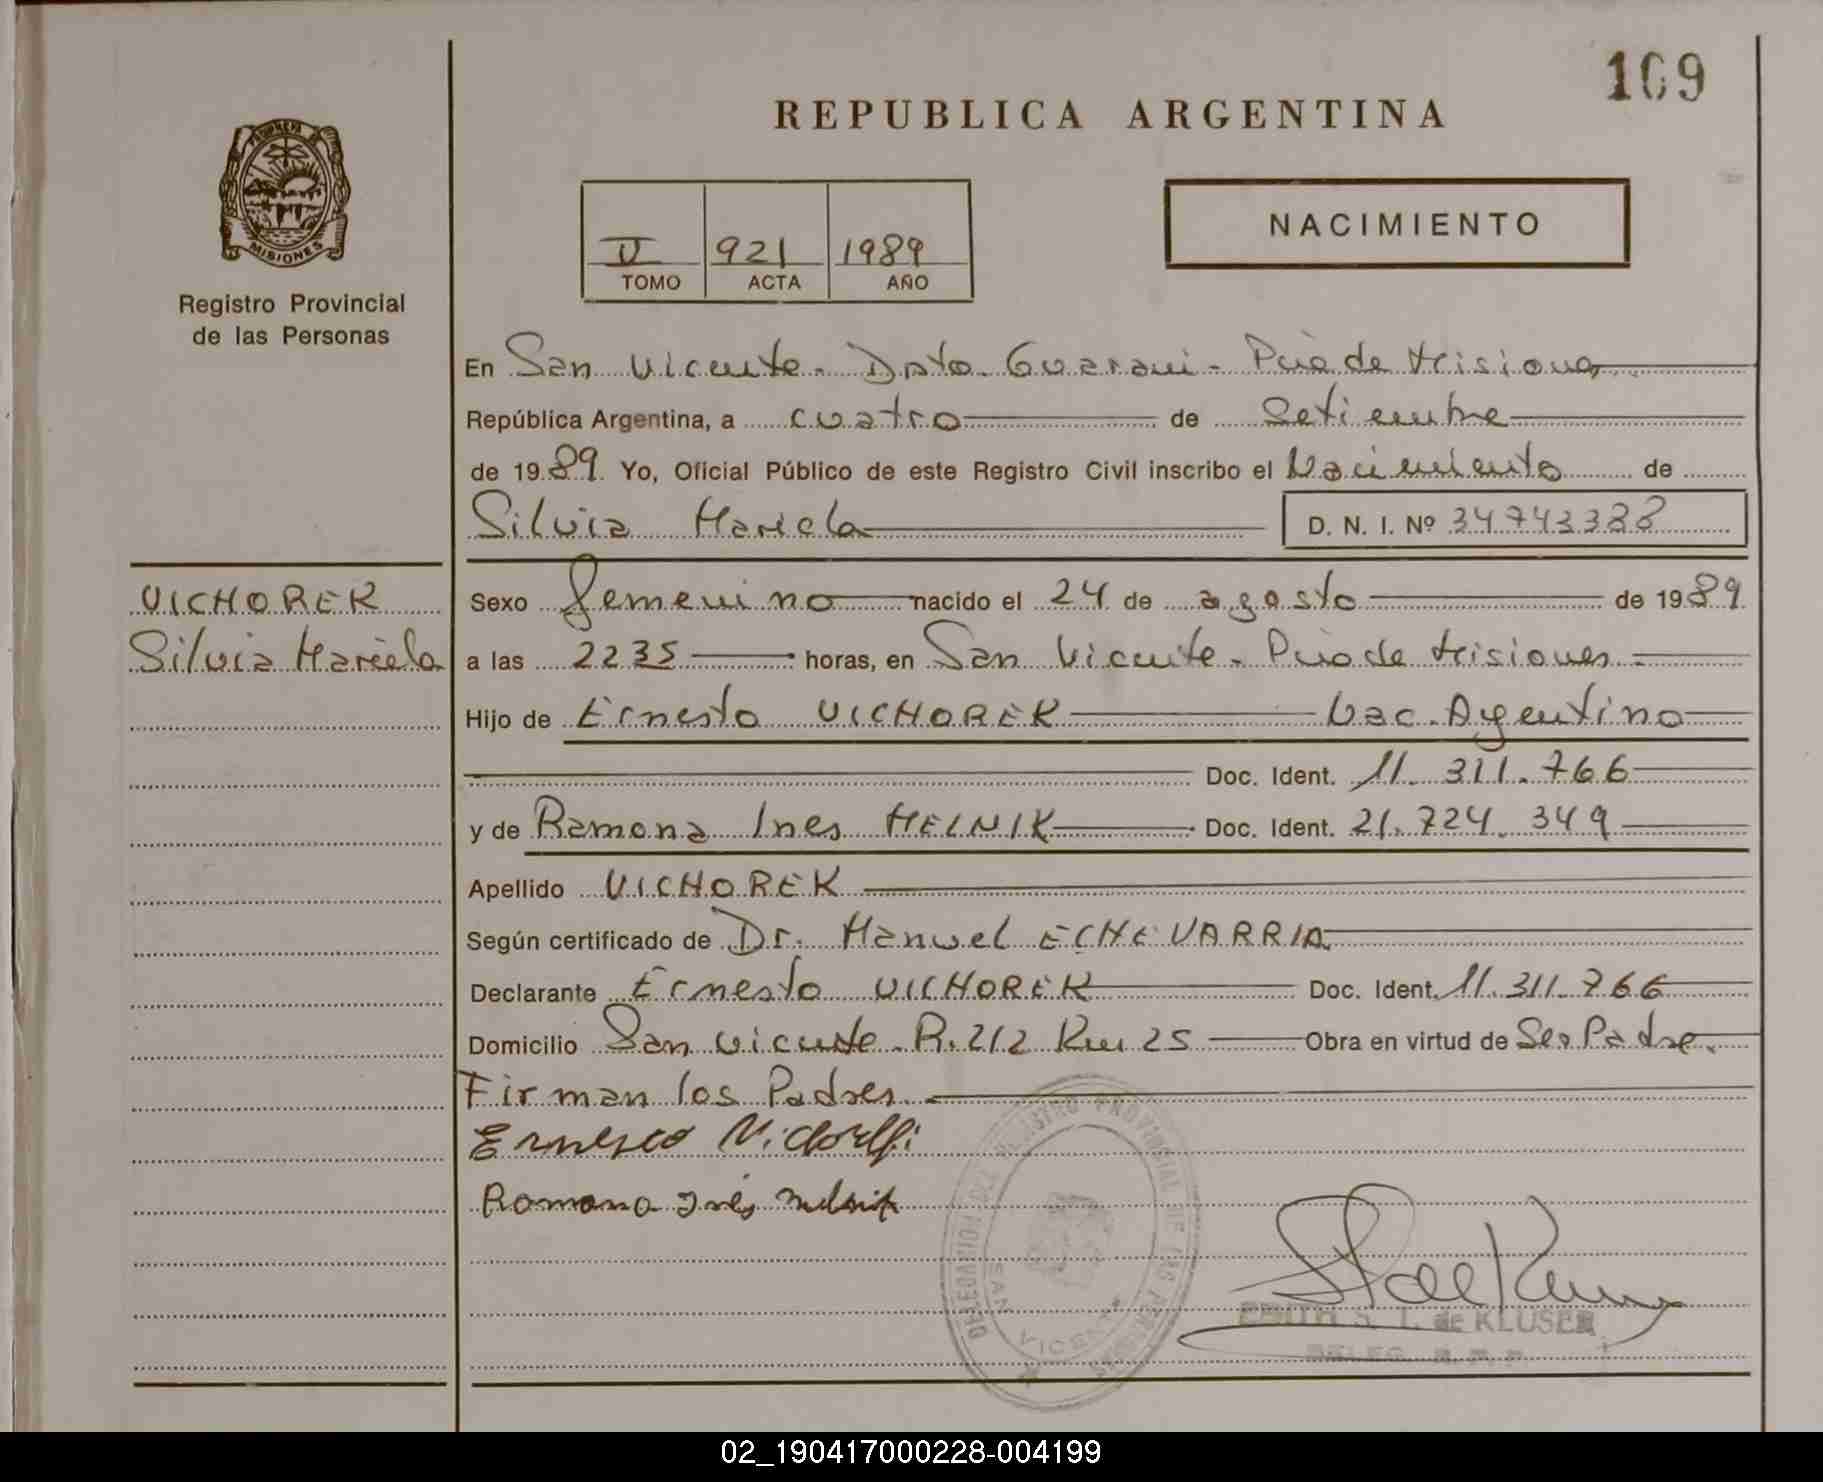 169
REPUBLICA ARGENTINA
MISIONES
Registro Provincial
de las Personas
V 921 1989
TOMO ACTA AÑO
NACIMIENTO
En San Vicente - Dpto. Guarani - Pcia de Misiones
República Argentina, a cuatro de Setiembre
de 1989. Yo, Oficial Público de este Registro Civil inscribo el Nacimiento de
Silvia Mariela D. N. I. Nº 34743388
VICHOREK
Silvia Mariela
Sexo femenino nacido el 24 de agosto de 1989
a las 2235 horas, en San Vicente - Pcia de Misiones.
Hijo de Ernesto VICHOREK Nac. Argentino
Doc. Ident. 11.311.766
y de Ramona Ines MELNIK Doc. Ident. 21.724.349
Apellido VICHOREK
Según certificado de Dr. Manuel ECHEVARRIA
Declarante Ernesto VICHOREK Doc. Ident. 11.311.766
Domicilio San Vicente - R. 212 Km 25 Obra en virtud de Ser Padre.
Firman los Padres.
Ernesto
Ramona Inés Melnik
DELEGACION DEL REGISTRO PROVINCIAL DE LAS PERSONAS
SAN VICENTE
EDITH S. I. de KLUSER
DELEG. R. P. P.
02_190417000228-004199